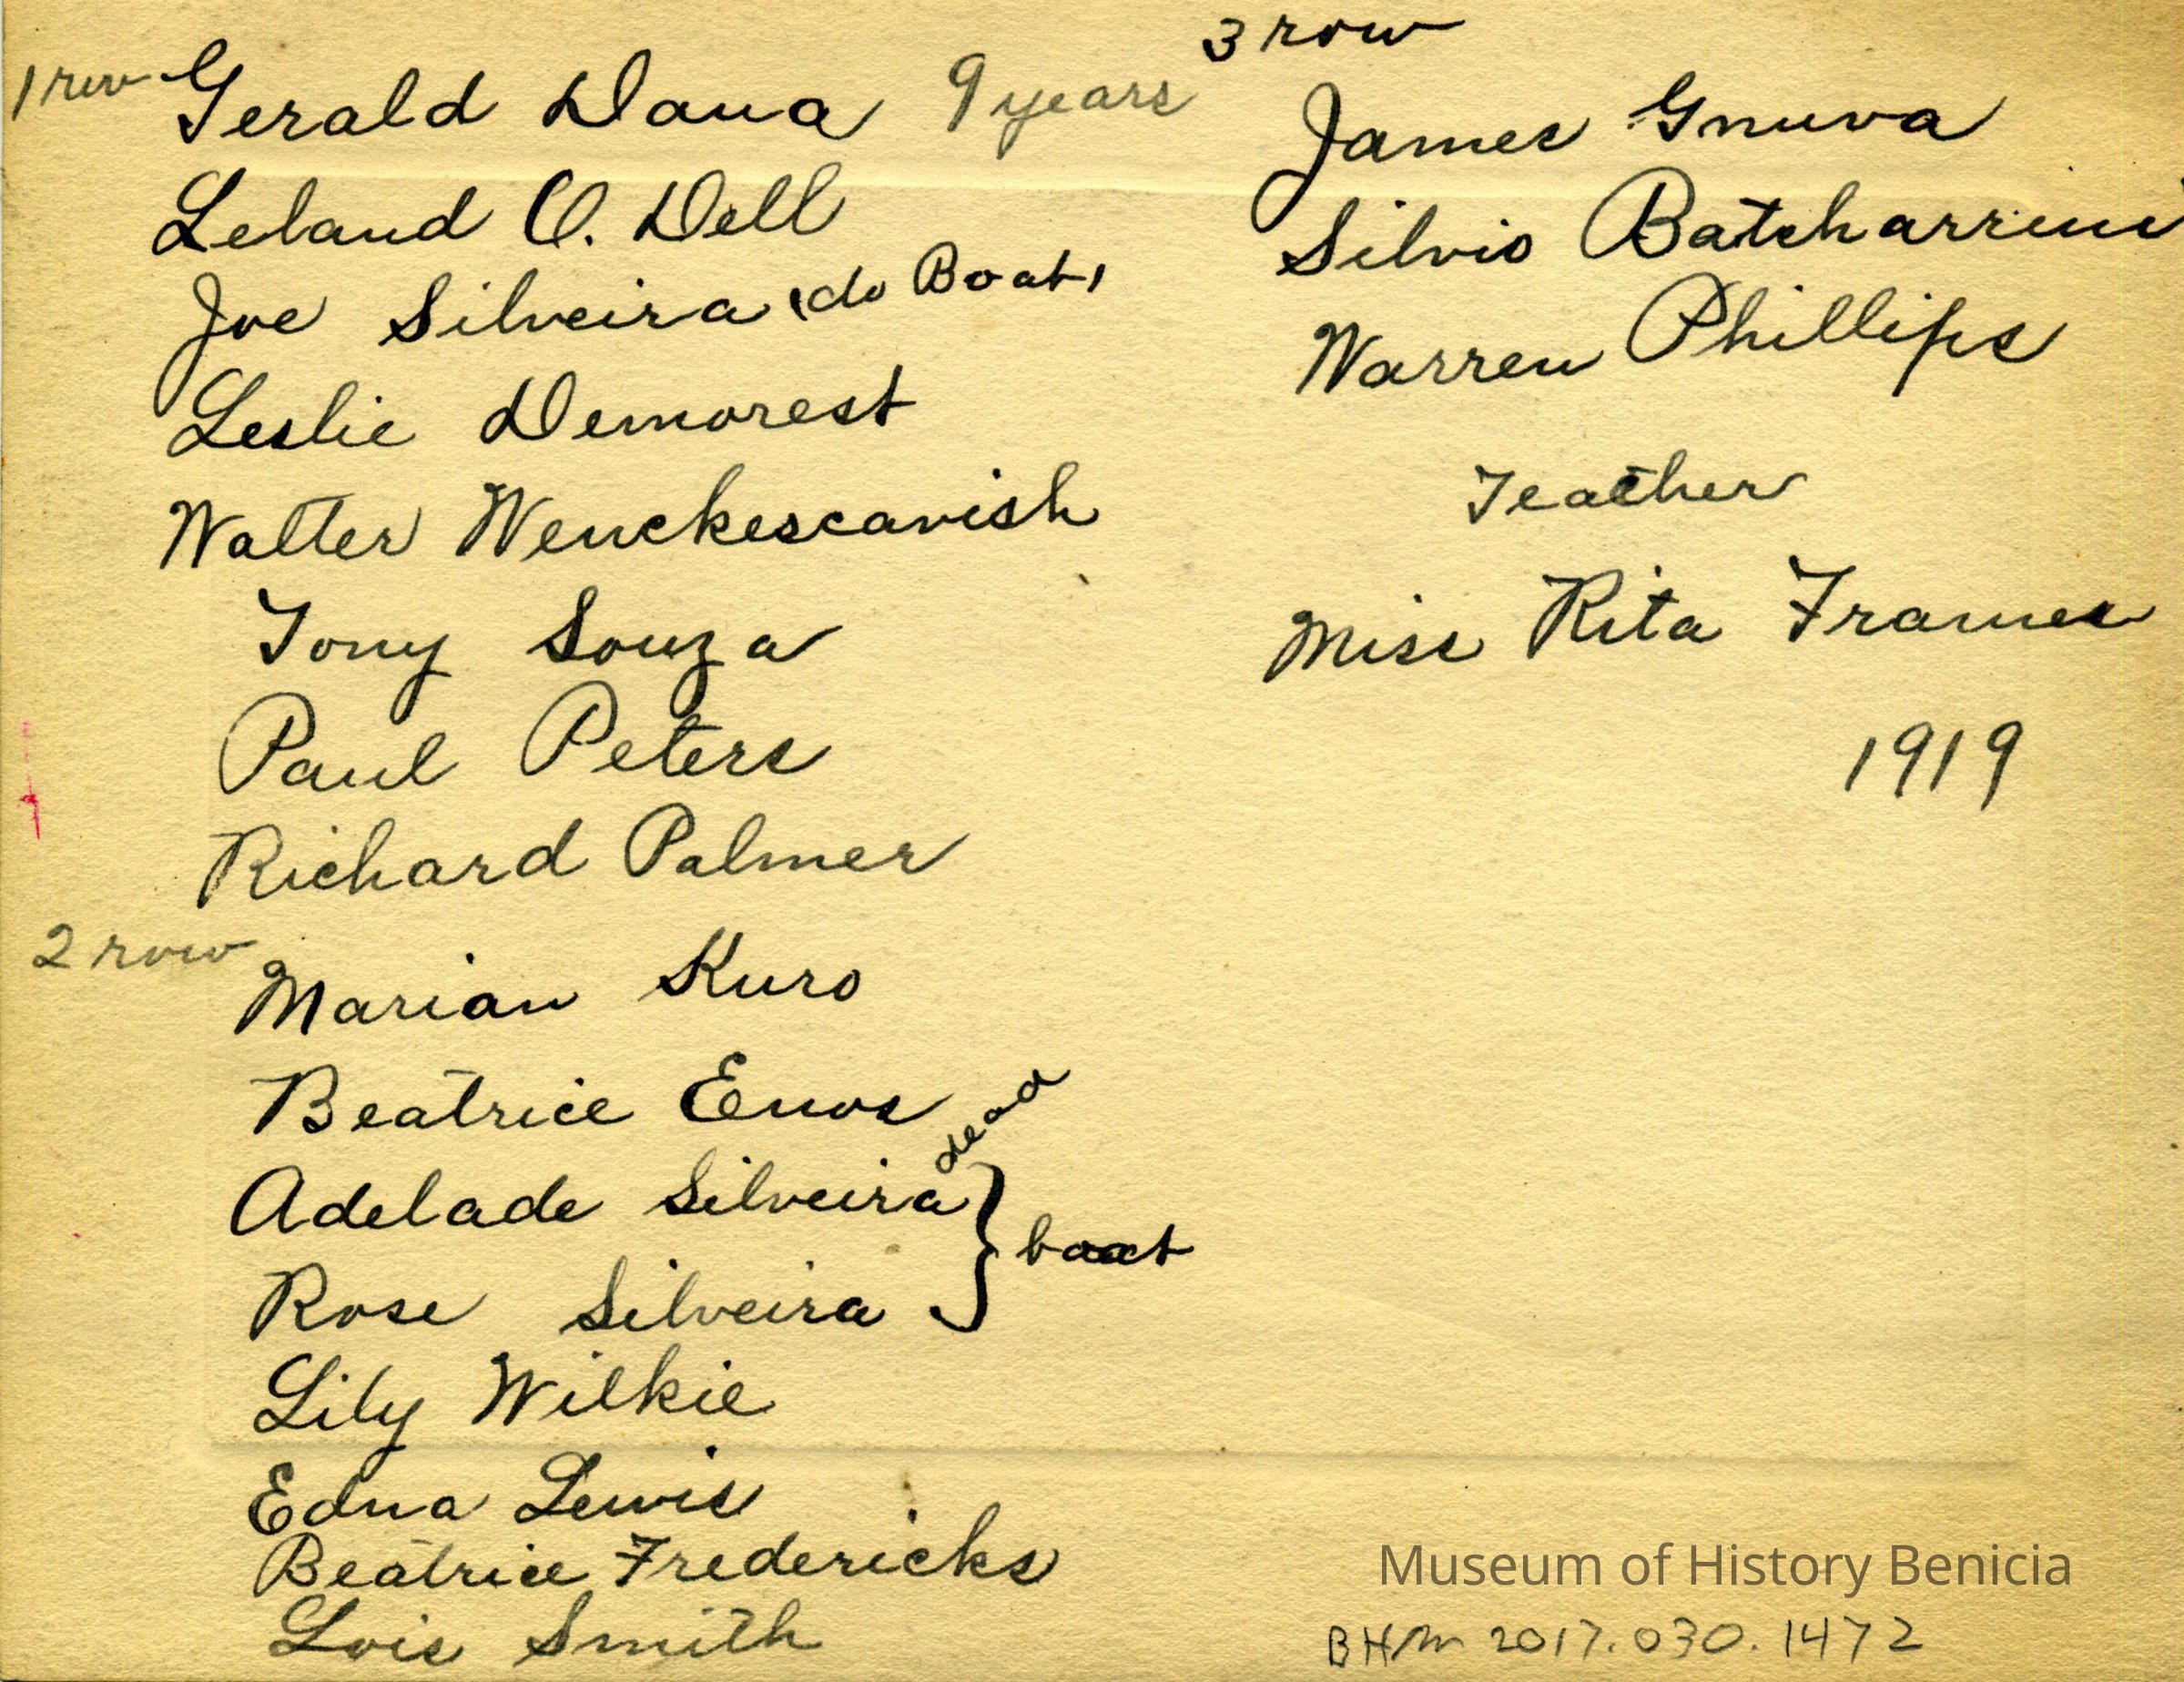 1 row Gerald Dana 9 years
Leland O. Dell
Joe Silveira (do Boat)
Leslie Demorest
Walter Wenckescavish
Tony Souza
Paul Peters
Richard Palmer
2 row
Marian Kuro
Beatrice Enos
dead
Adelade Silveira
} boat
Rose Silveira
Lily Wilkie
Edna Lewis
Beatrice Fredericks
Lois Smith
3 row
James Gnuva
Silvio Batcharrini
Warren Phillips
Teacher
Miss Rita Frames
1919
Museum of History Benicia
BHM 2017.030.1472